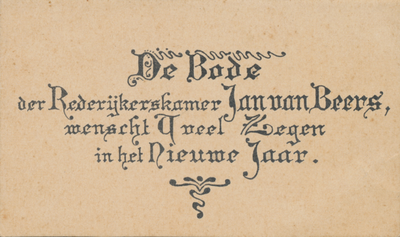 De Bode
der Rederijkerskamer Jan van Beers,
wenscht U veel Zegen
in het Nieuwe Jaar.